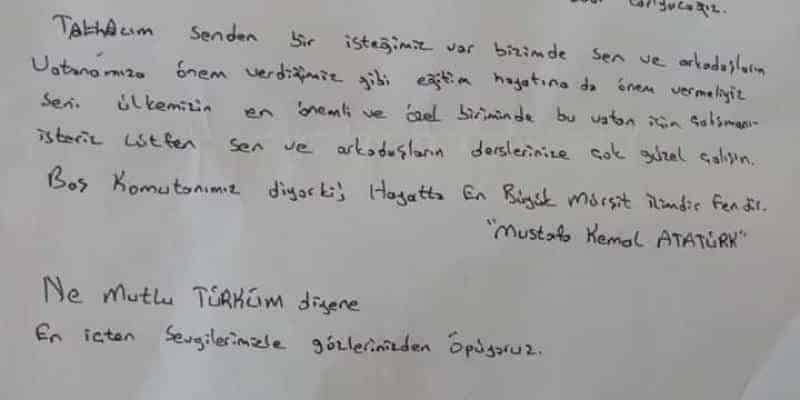 koruyacağız.
TALHAcım senden bir isteğimiz var bizimde sen ve arkadaşların
Vatanımıza önem verdiğimiz gibi eğitim hayatına da önem vermeliyiz
Seni ülkemizin en önemli ve özel biriminde bu vatan için çalışmanı
isteriz Lütfen sen ve arkadaşların derslerinize çok güzel çalışın.
Baş Komutanımız diyorki; Hayatta En Büyük Mürşit ilimdir fendir.
"Mustafa Kemal ATATÜRK"
Ne mutlu TÜRKÜM diyene
En içten Sevgilerimizle gözlerinizden Öpüyoruz.